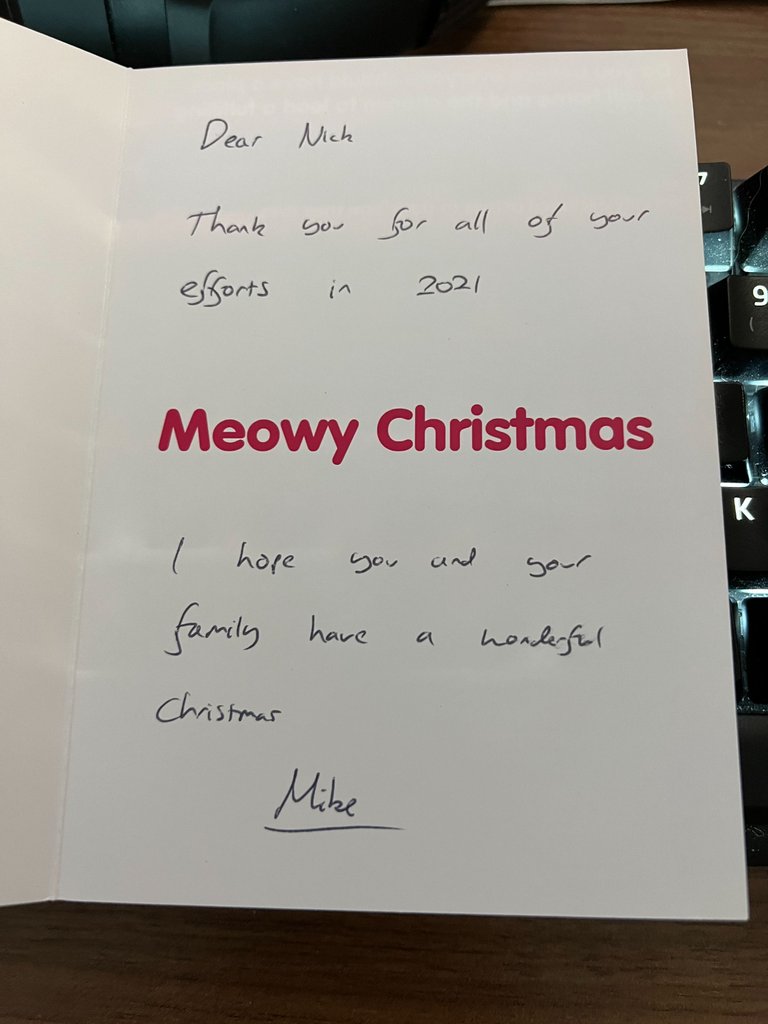 Dear Nick
Thank you for all of your
efforts in 2021
Meowy Christmas
I hope you and your
family have a wonderful
Christmas
Mike
7
9
(
K